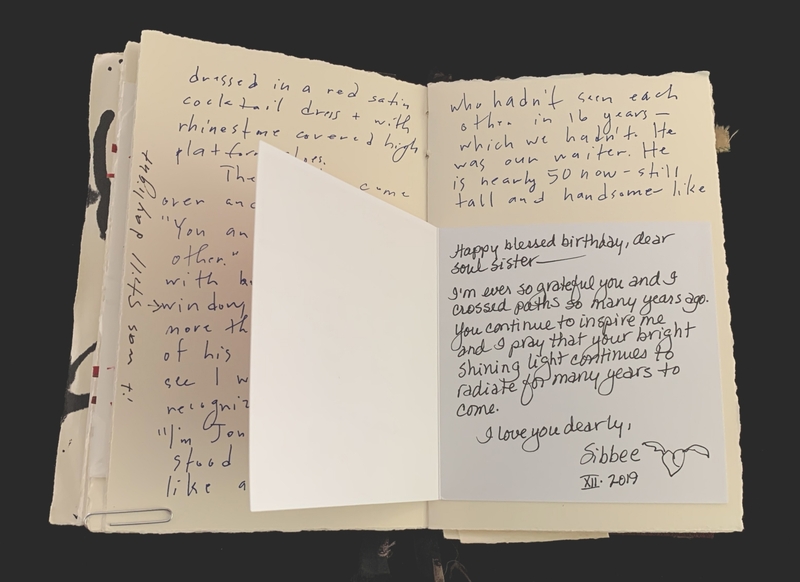 dressed in a red satin
cocktail dress + with
rhinestone covered high
platform shoes.
The came
over an
"You an
other."
with b
window
more th
of his
see I w
recogniz
"I'm Jon
stood
like a
it was still daylight
who hadn't seen each
other in 16 years —
which we hadn't. He
was our waiter. He
is nearly 50 now - still
tall and handsome like
Happy blessed birthday, dear
soul sister —
I'm ever so grateful you and I
crossed paths so many years ago.
You continue to inspire me
and I pray that your bright
shining light continues to
radiate for many years to
come.
I love you dearly,
Sibbee
XII. 2019